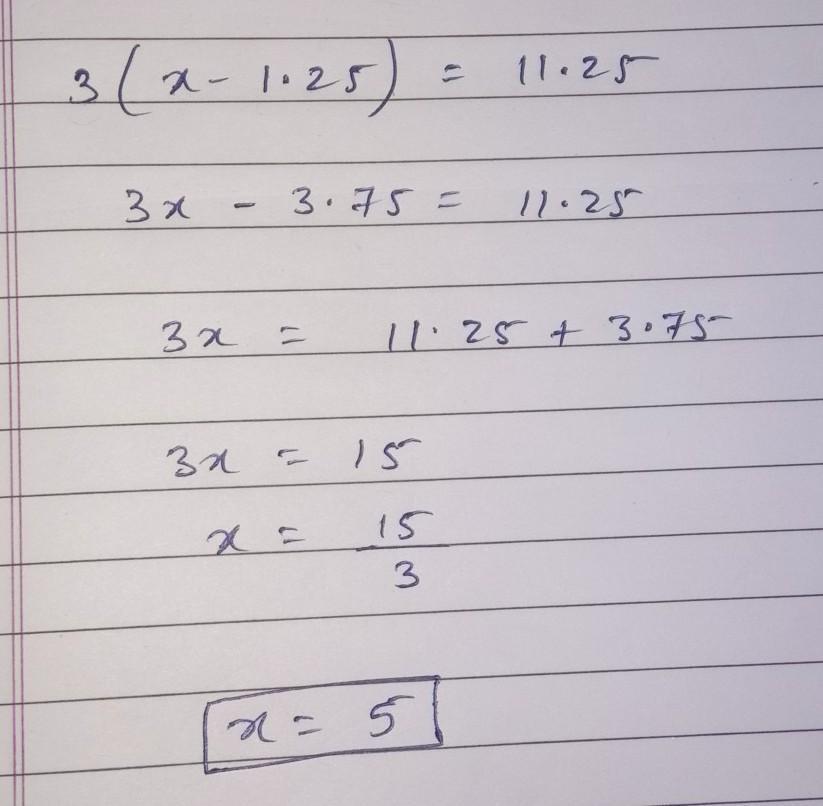 3(x - 1.25) = 11.25
3x - 3.75 = 11.25
3x = 11.25 + 3.75
3x = 15
x = 15/3
x = 5